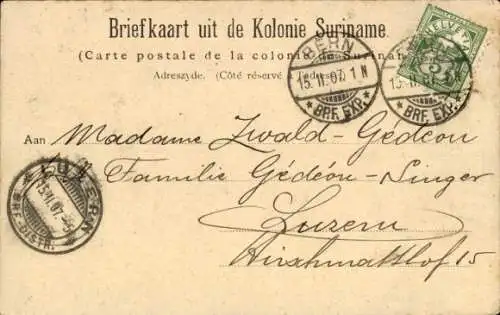 Briefkaart uit de Kolonie Suriname.
(Carte postale de la colonie de Surinam
Adreszyde. (Côté réservé
BERN
15. II. 07. 1 N
BRF. EXP.
BERN
BRF. EXP.
HELVETIA
5
Aan Madame Zwald-Gedeon
Familie Gédéon-Singer
Luzern
Hirschmattstof 15
LUZERN
15. II. 07.
BRF. DISTR.